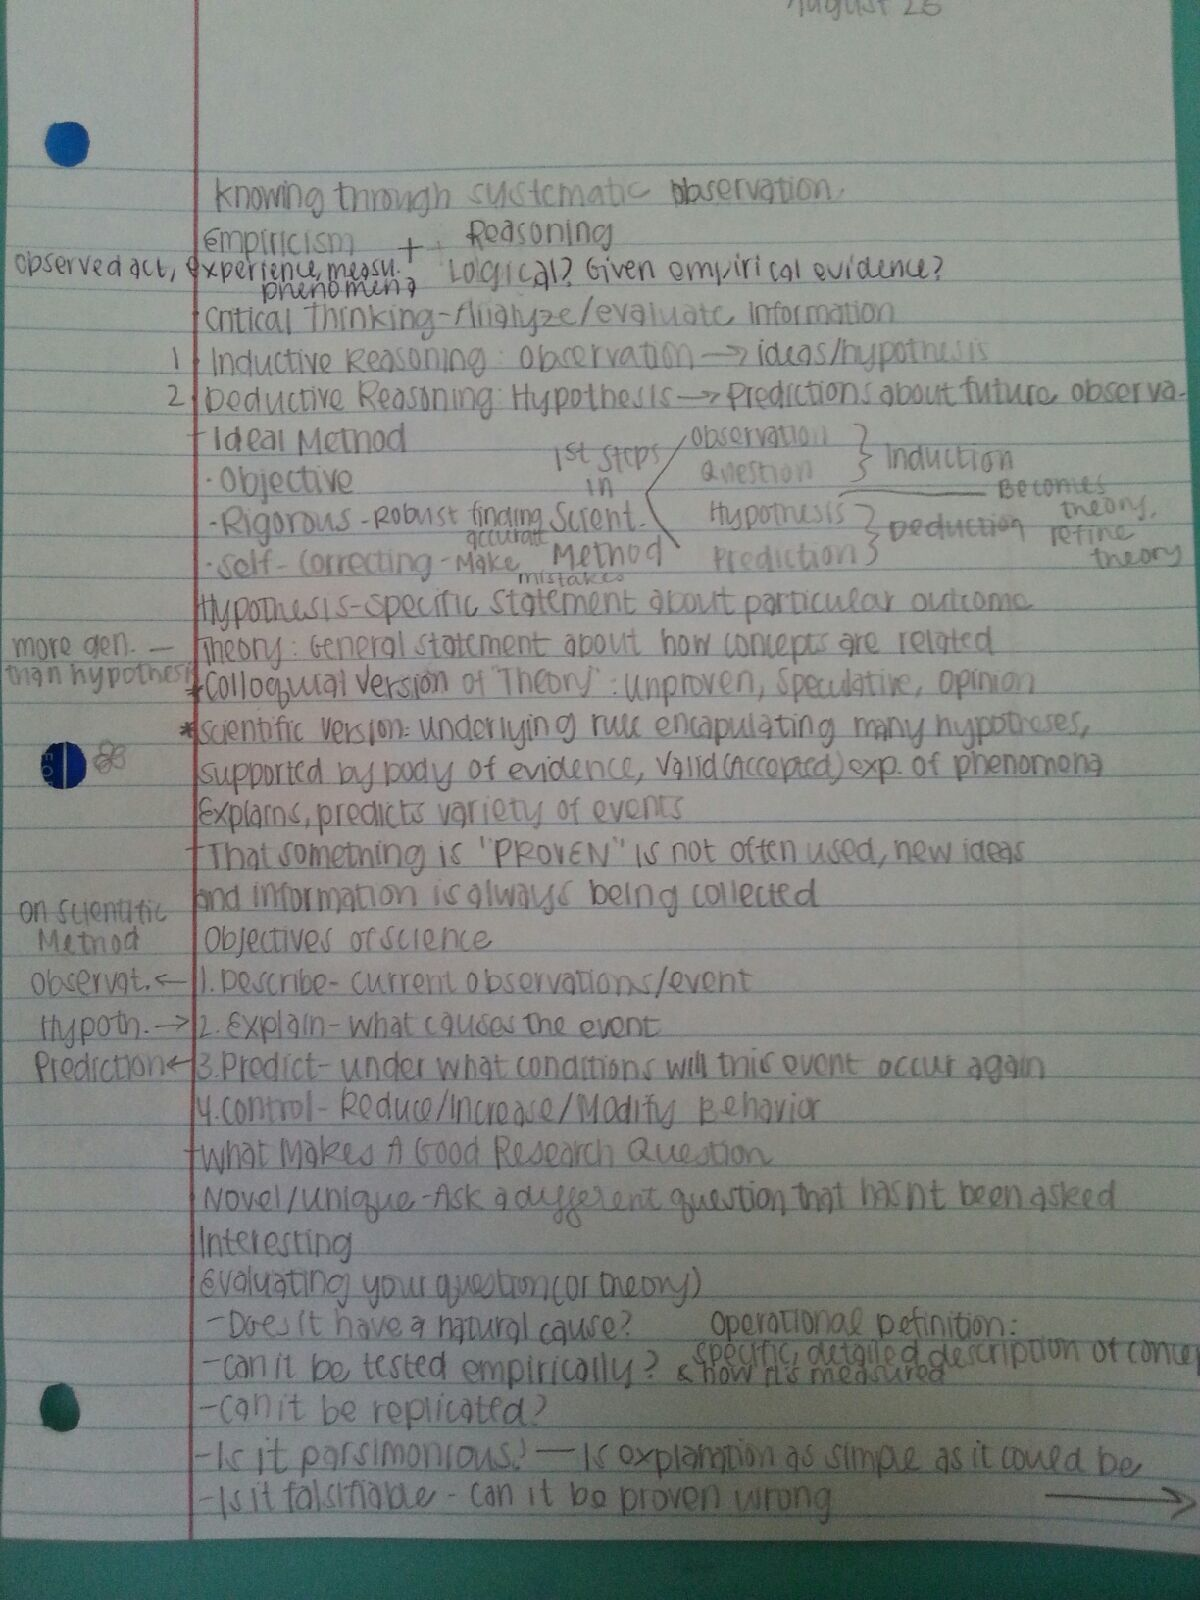 August 26
Knowing through systematic observation.
Empiricism + Reasoning
observed act, experience, measu. phenomena Logical? Given empirical evidence?
Critical Thinking-Analyze/evaluate Information
1 Inductive Reasoning: Observation → ideas/hypothesis
2 Deductive Reasoning: Hypothesis → Predictions about future observa-
Ideal Method
·Objective
-Rigorous-Robust finding accurate
·Self-Correcting-Make mistakes
1st Steps in Scient. Method
Observation
Question } Induction
Hypothesis
Prediction } Deduction
Becomes theory, refine theory
Hypothesis-Specific Statement about particular outcome
more gen. — than hypothesis
Theory: General statement about how concepts are related
*Colloquial version of "Theory": Unproven, Speculative, Opinion
*Scientific version: underlying rule encapulating many hypotheses,
supported by body of evidence, valid (Accepted) exp. of phenomena
Explains, predicts variety of events
That something is "PROVEN" is not often used, new ideas
and information is always being collected
on scientific Method
Objectives of science
Observat. ← 1. Describe- current observations/event
Hypoth. → 2. Explain-what causes the event
Prediction ← 3. Predict- under what conditions will this event occur again
4. Control- Reduce/Increase/Modify Behavior
What Makes A Good Research Question
Novel/unique-Ask a different question, that hasnt been asked
Interesting
Evaluating your question (or theory)
-Does it have a natural cause?
-can it be tested empirically?
Operational Definition:
specific, detailed description of conce
& how it's measured
-Can it be replicated?
-Is it parsimonious? — Is explanation as simple as it could be
-Is it falsifiable - can it be proven wrong →